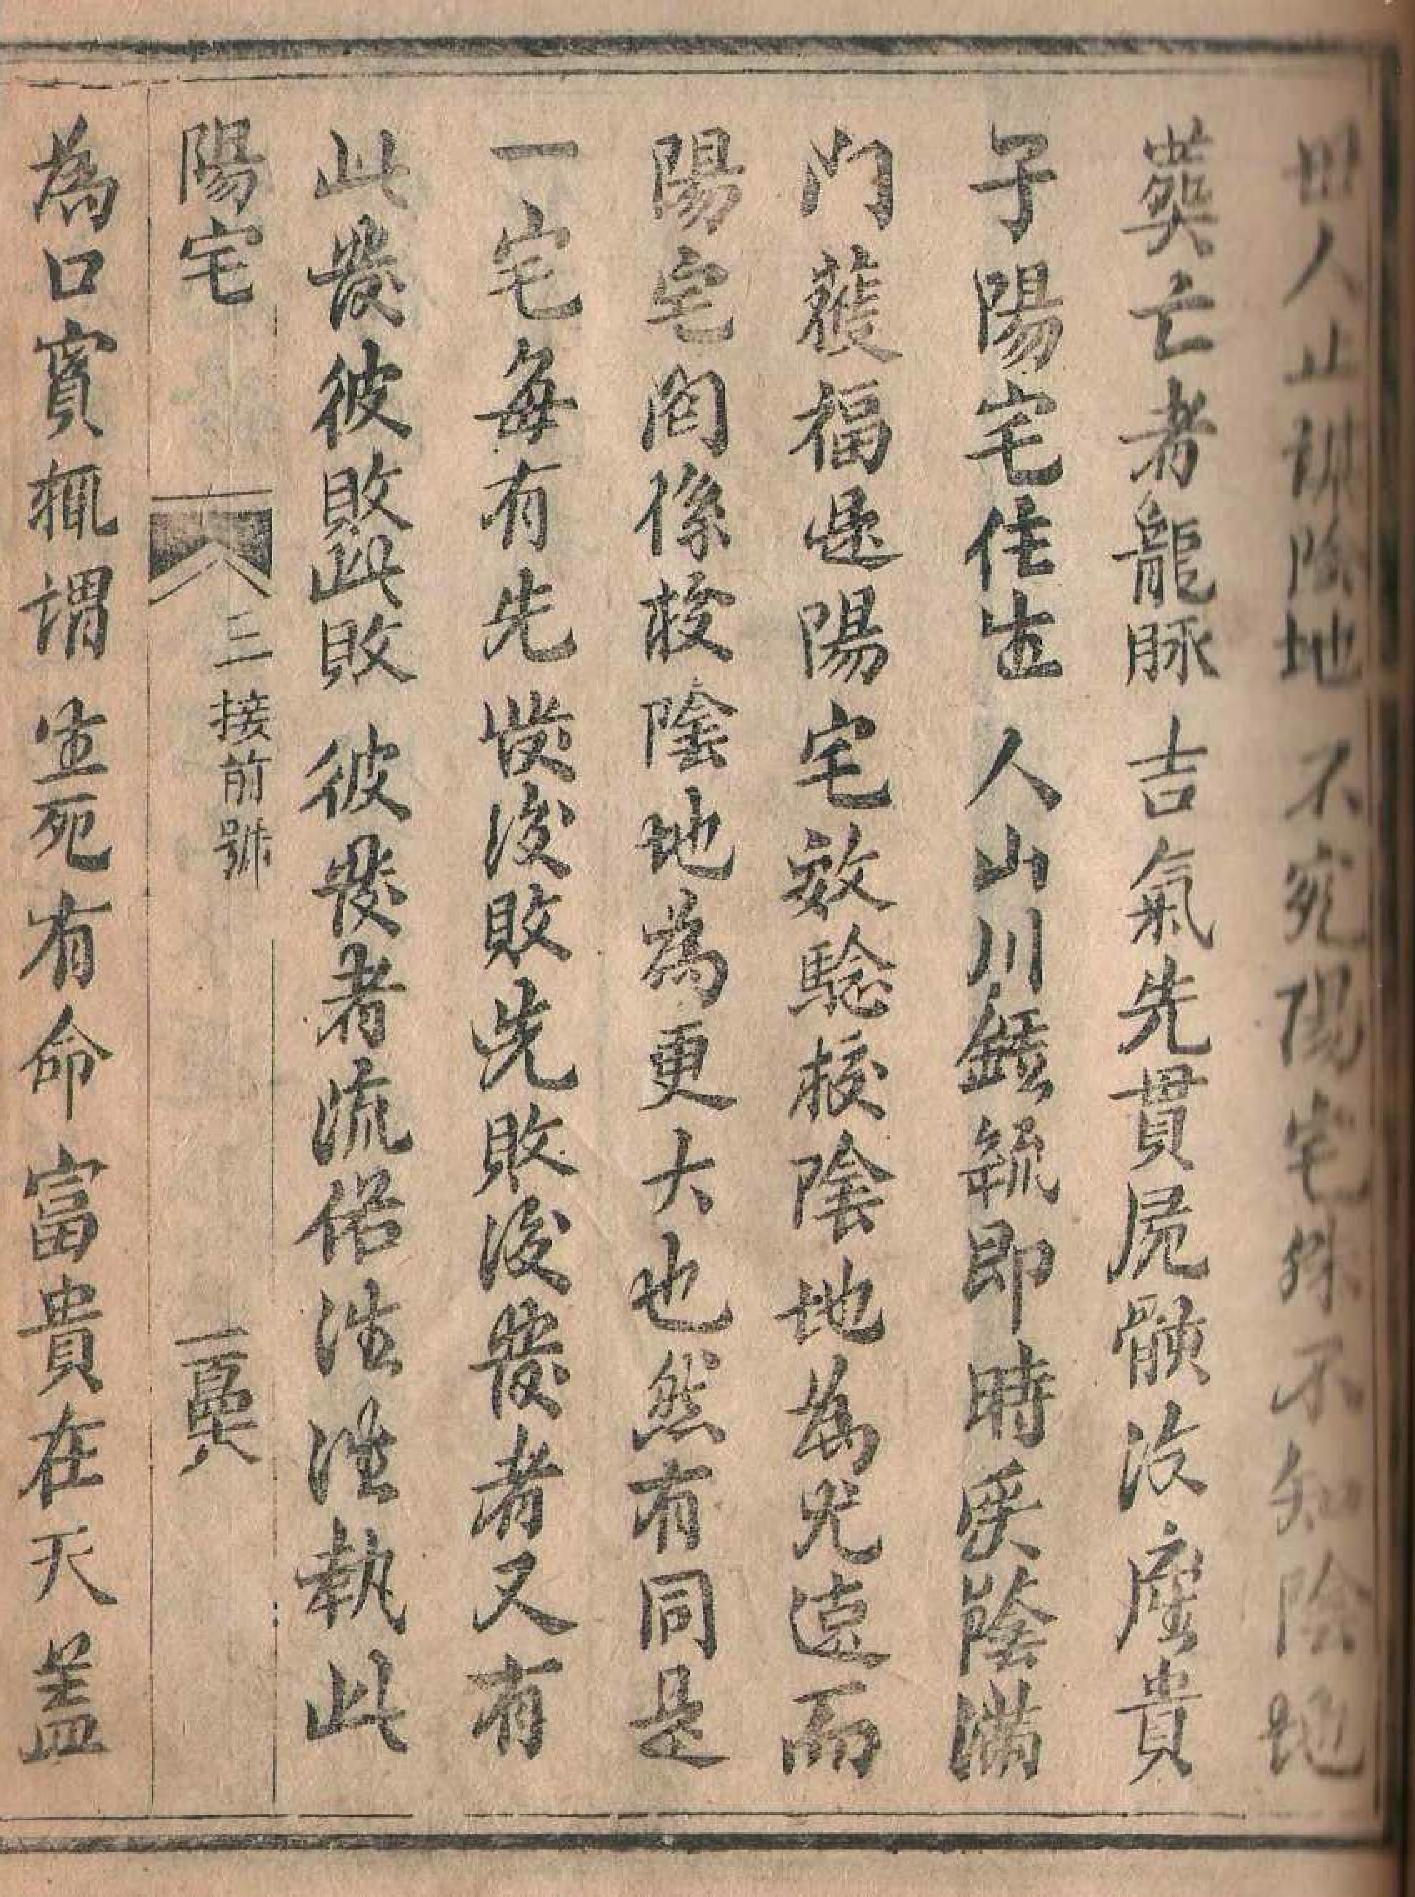 世人止識陰地不究陽宅殊不知陰地
葬亡者龍脉吉氣先貫屍骸次產貴
子陽宅住生人山川鍾毓即時炙蔭滿
門獲福是陽宅效騐校陰地為尤速而
陽宅関係校陰地為更大也然有同是
一宅每有先發後敗先敗後發者又有
此發彼敗此敗彼發者流俗徃徃執此
陽宅
三接前號
為口實輒謂生死有命富貴在天盖